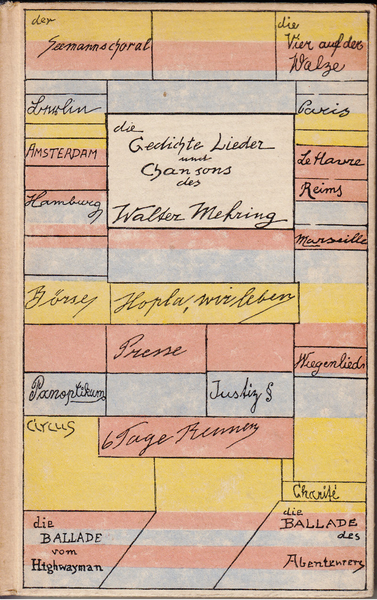 der
Seemannschoral
die
Vier auf der
Walze
Berlin
Paris
die
Gedichte Lieder
und
Chansons
des
Walter Mehring
AMSTERDAM
Le Havre
Reims
Hamburg
Marseille
Börse
Hopla, wir leben
Presse
Wiegenlieder
Panoptikum
Justiz §
Circus
6 Tage Rennen
Charité
die
BALLADE
vom
Highwayman
die
BALLADE
des
Abenteurers